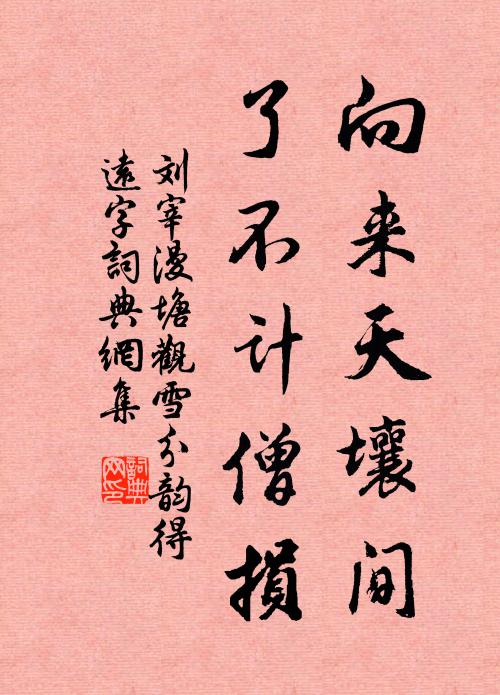 向来天壤间
了不计僧损
刘宰漫塘觀雪分韵得
遠字詞典網集
詞典网印